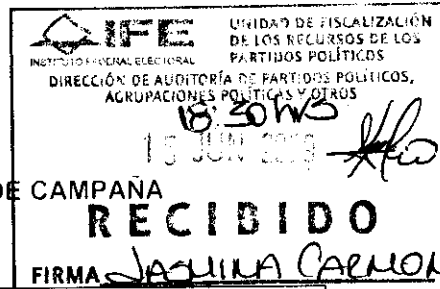 IFE
INSTITUTO FEDERAL ELECTORAL
UNIDAD DE FISCALIZACIÓN
DE LOS RECURSOS DE LOS
PARTIDOS POLÍTICOS
DIRECCIÓN DE AUDITORÍA DE PARTIDOS POLÍTICOS,
AGRUPACIONES POLÍTICAS Y OTROS
18:30 hrs
15 JUN 2009
DE CAMPAÑA
RECIBIDO
FIRMA JASMINA CARMON